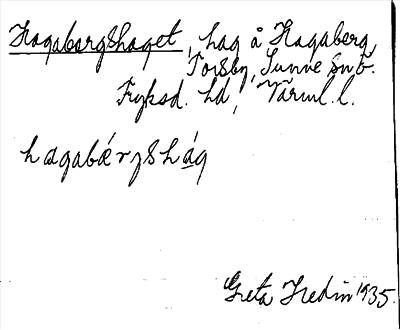 Hagabergshaget, hag å Hagaberg,
Torsby, Sunne Snb.
Fryksd. hd, Värml. l.
hagabǽrgshág
Greta Hedin 1935.